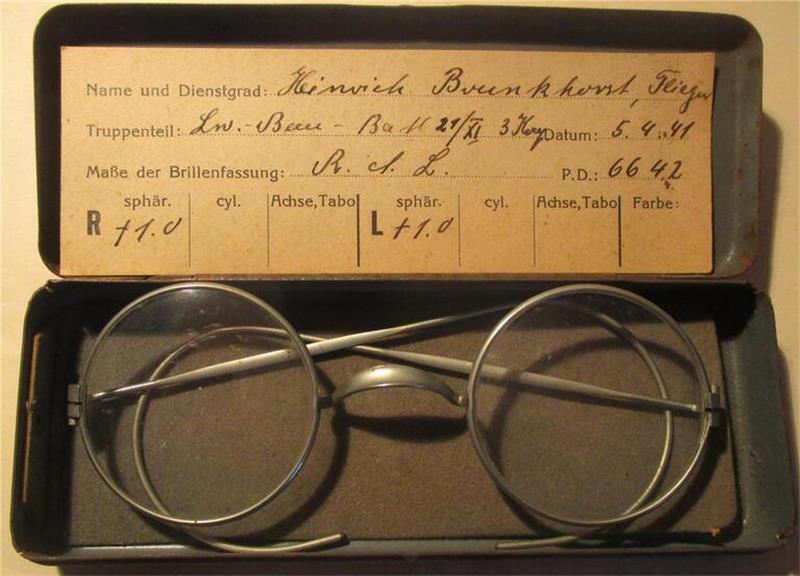 Name und Dienstgrad: Heinrich Brunkhorst, Flieger
Truppenteil: Lw.-Bau-Batl 21/XI 3 Kop Datum: 5.4.41
Maße der Brillenfassung: R. d. L. P.D.: 66 42
sphär. cyl. Achse, Tabo sphär. cyl. Achse, Tabo Farbe:
R +1.0 L +1.0